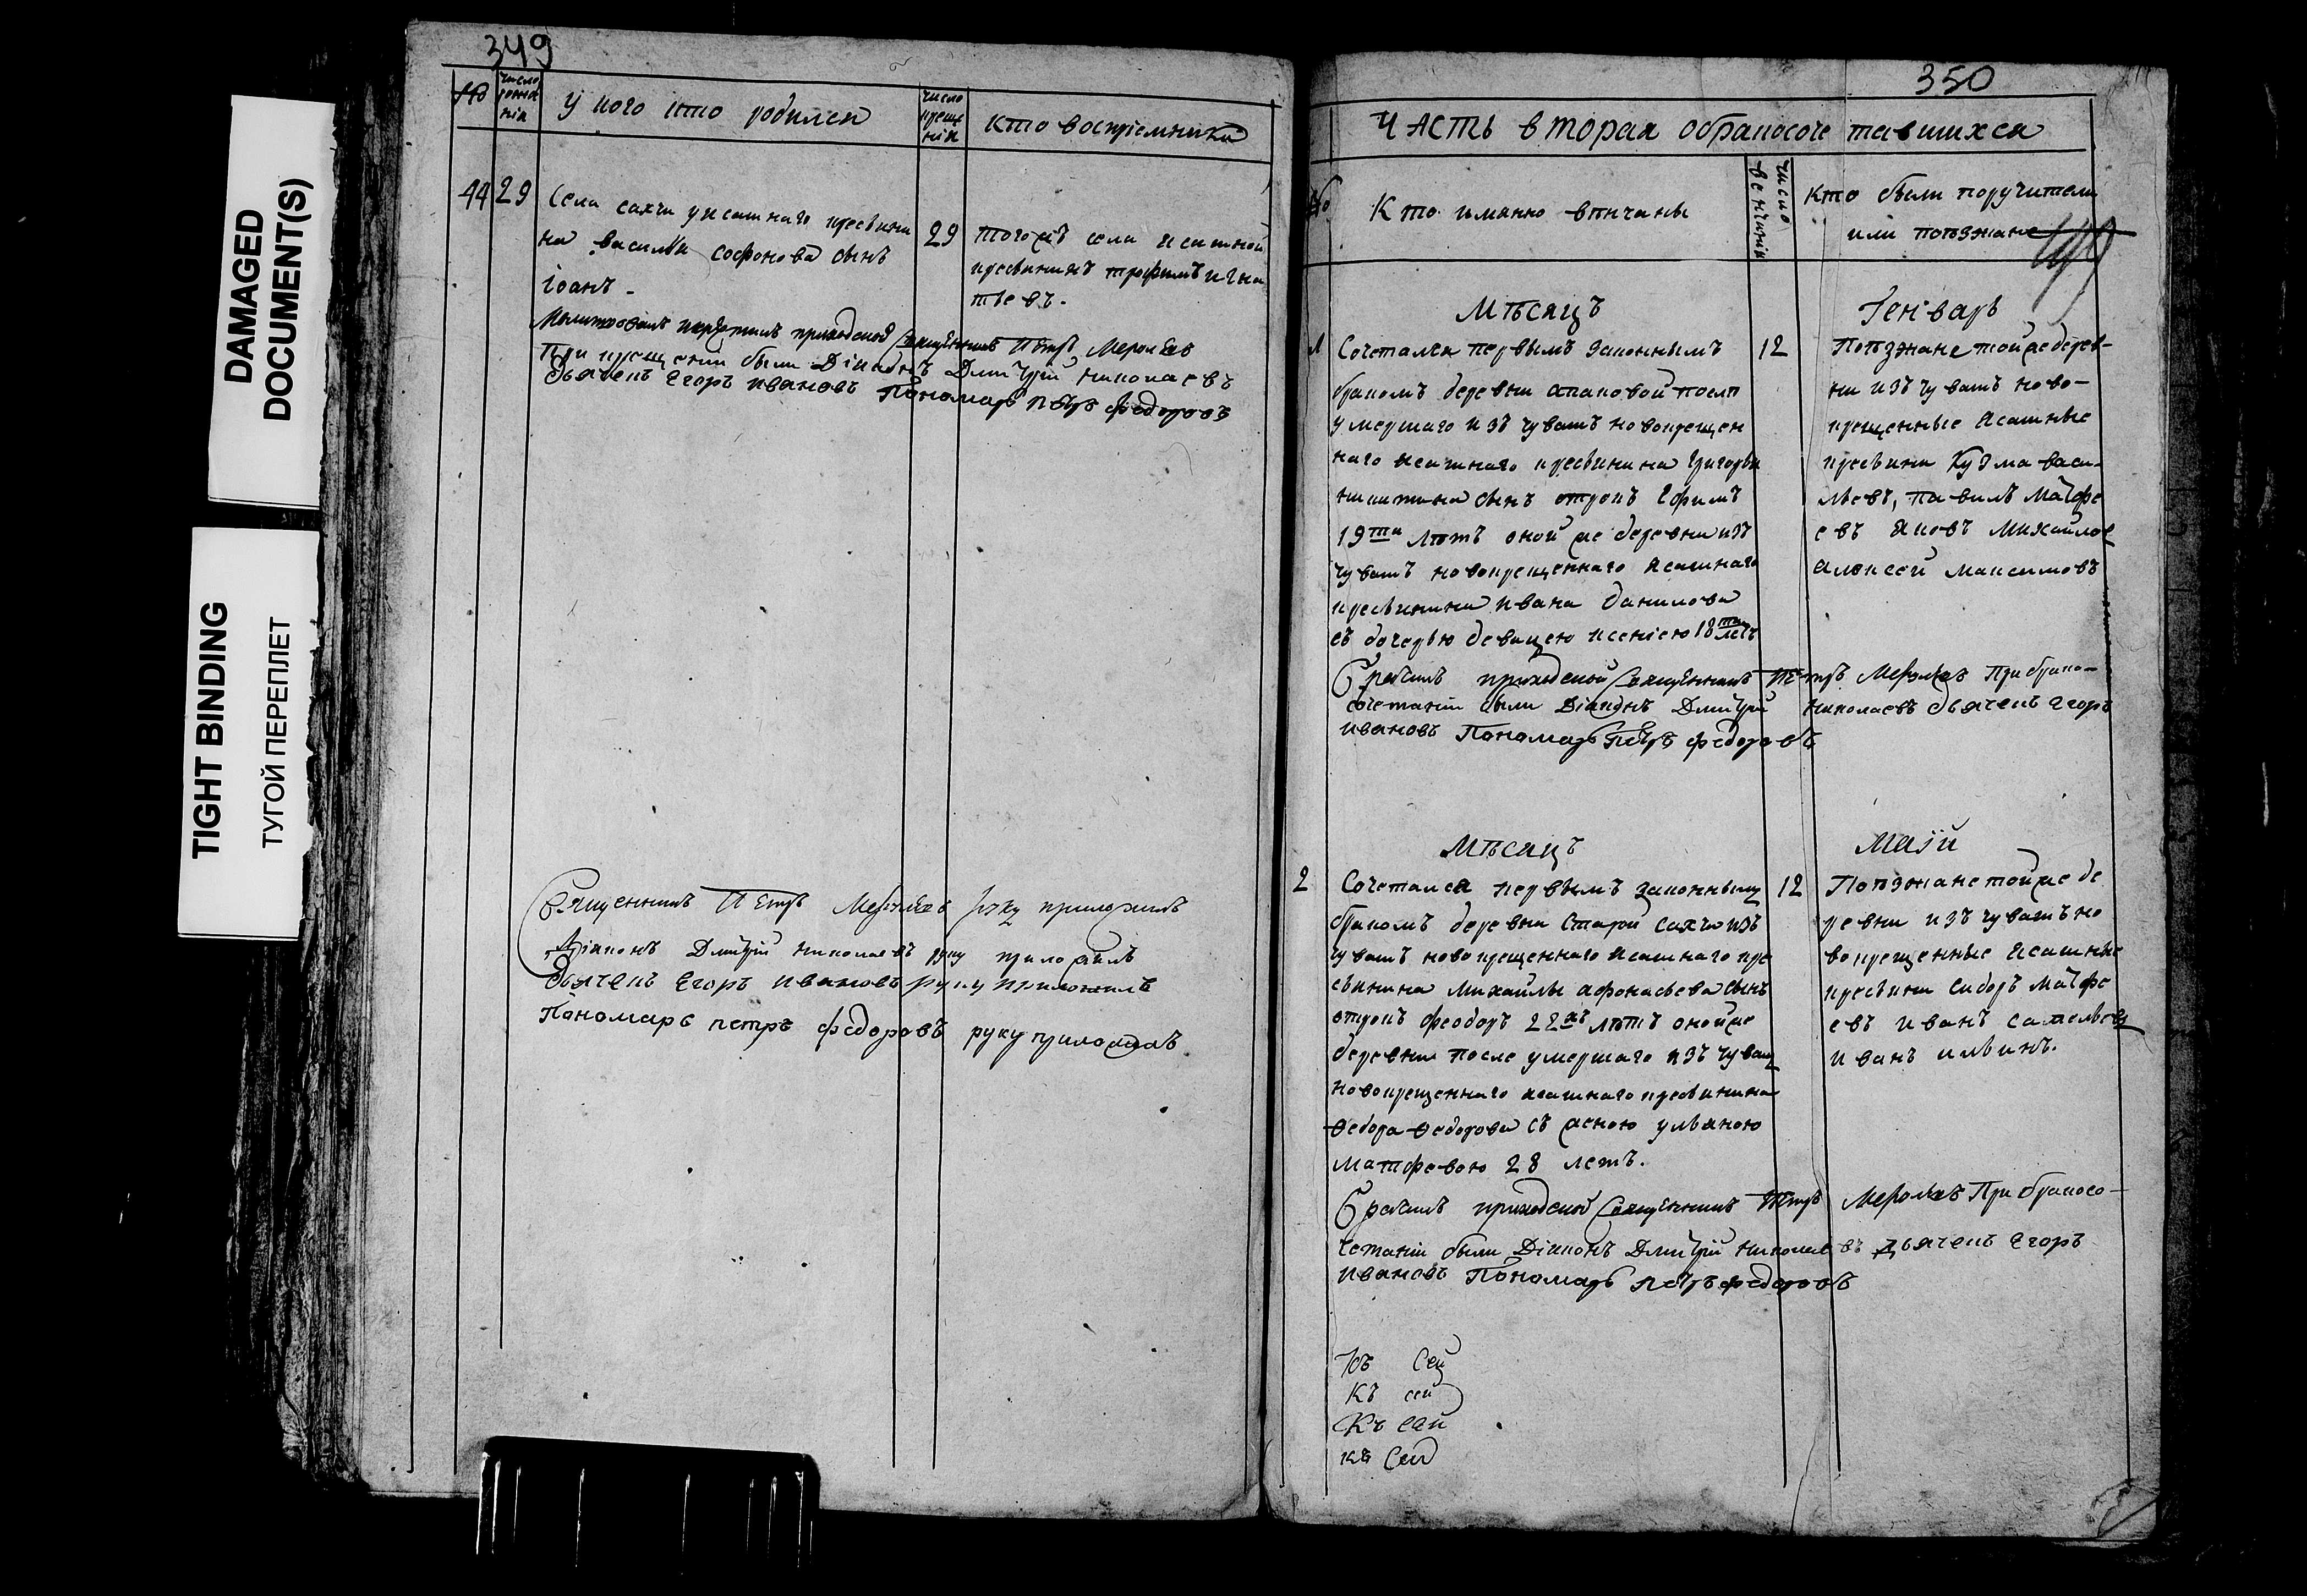 DAMAGED
DOCUMENT(S)
TIGHT BINDING
ТУГОЙ ПЕРЕПЛЕТ
349
число рожде нія
у кого кто родился
число креще нія
кто воспріемники
44 29 Села сахчи у ясашнаго крестьяни
на василья софонова сынъ
іоанъ
29 тогожъ села ясашной
крестьянинъ трофимъ игна
тьевъ.
Молитвовалъ и крестилъ приходской Священникъ Петръ
При крещеніи были Діаконъ Дмитрій николаевъ
Дьячекъ Егоръ ивановъ Пономарь петръ федоровъ
Священникъ Петръ руку приложилъ
Діаконъ Дмитрій николаевъ руку приложилъ
Дьячекъ Егоръ ивановъ руку приложилъ
Пономарь петръ федоровъ руку приложилъ
350
ЧАСТЬ вторая обракосоче тавшихся
Кто имянно венчаны
число венчанія
кто были поручители
или поезжане
Мѣсяцъ Генварь
1 Сочетался первымъ законнымъ
бракомъ деревни апаковой посли
умершаго изъ чувашъ новокрещен
наго ясашнаго крестьянина Григорья
никитина сынъ отрокъ Ефимъ
19ти лѣтъ оной же деревни изъ
чувашъ новокрещеннаго ясашнаго
крестьянина ивана данилова
съ дочерью девицею ксеніею 18ти летъ
12 Поѣзжане тойже дерев-
ни изъ чувашъ ново-
крещенные ясашные
крестьяни Кузма васи-
льевъ, павилъ матфе
евъ яковъ михайлов
алексей максимовъ
Бракъ приходской Священникъ Петръ При брако-
сочетаніи были Діаконъ Дмитрій николаевъ дьячекъ Егоръ
ивановъ Пономарь петръ федоровъ
Мѣсяцъ Маій
2 Сочетался первымъ законнымъ
бракомъ деревни Старой сахчи изъ
чувашъ новокрещеннаго ясашнаго кре
стьянина михайлы афонасьева сынъ
отрокъ феодоръ 22хъ лѣтъ онойже
деревни после умершаго изъ чуваш
новокрещеннаго ясашнаго крестьянина
Ѳедора Ѳедорова съ женою ульяною
матфевою 28 летъ.
12 Поѣзжане тойже де
ревни изъ чувашъ но
вокрещенные ясашные
крестьяни сидоръ матфе
евъ иванъ савельевъ
иванъ ильинъ.
приходской Священникъ Петръ При бракосо-
четаніи были Діаконъ Дмитрій николаевъ дьячекъ Егоръ
ивановъ Пономарь петръ федоровъ
Къ Сей
Къ сей
Къ сей
къ Сей